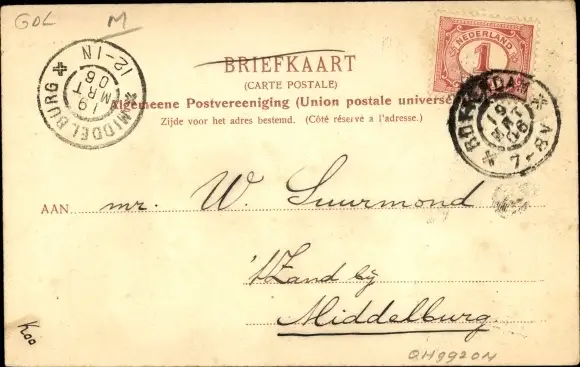 GDL M
NEDERLAND
1
BRIEFKAART
(CARTE POSTALE)
Algemeene Postvereeniging (Union postale universe
Zijde voor het adres bestemd. (Côté réservé a l'adresse.)
MIDDELBURG
12-1N
19 MRT 06
ROTTERDAM
7-8V
AAN mr. W. Suurmond
't Zand bij
Middelburg
Koo
QH9920N